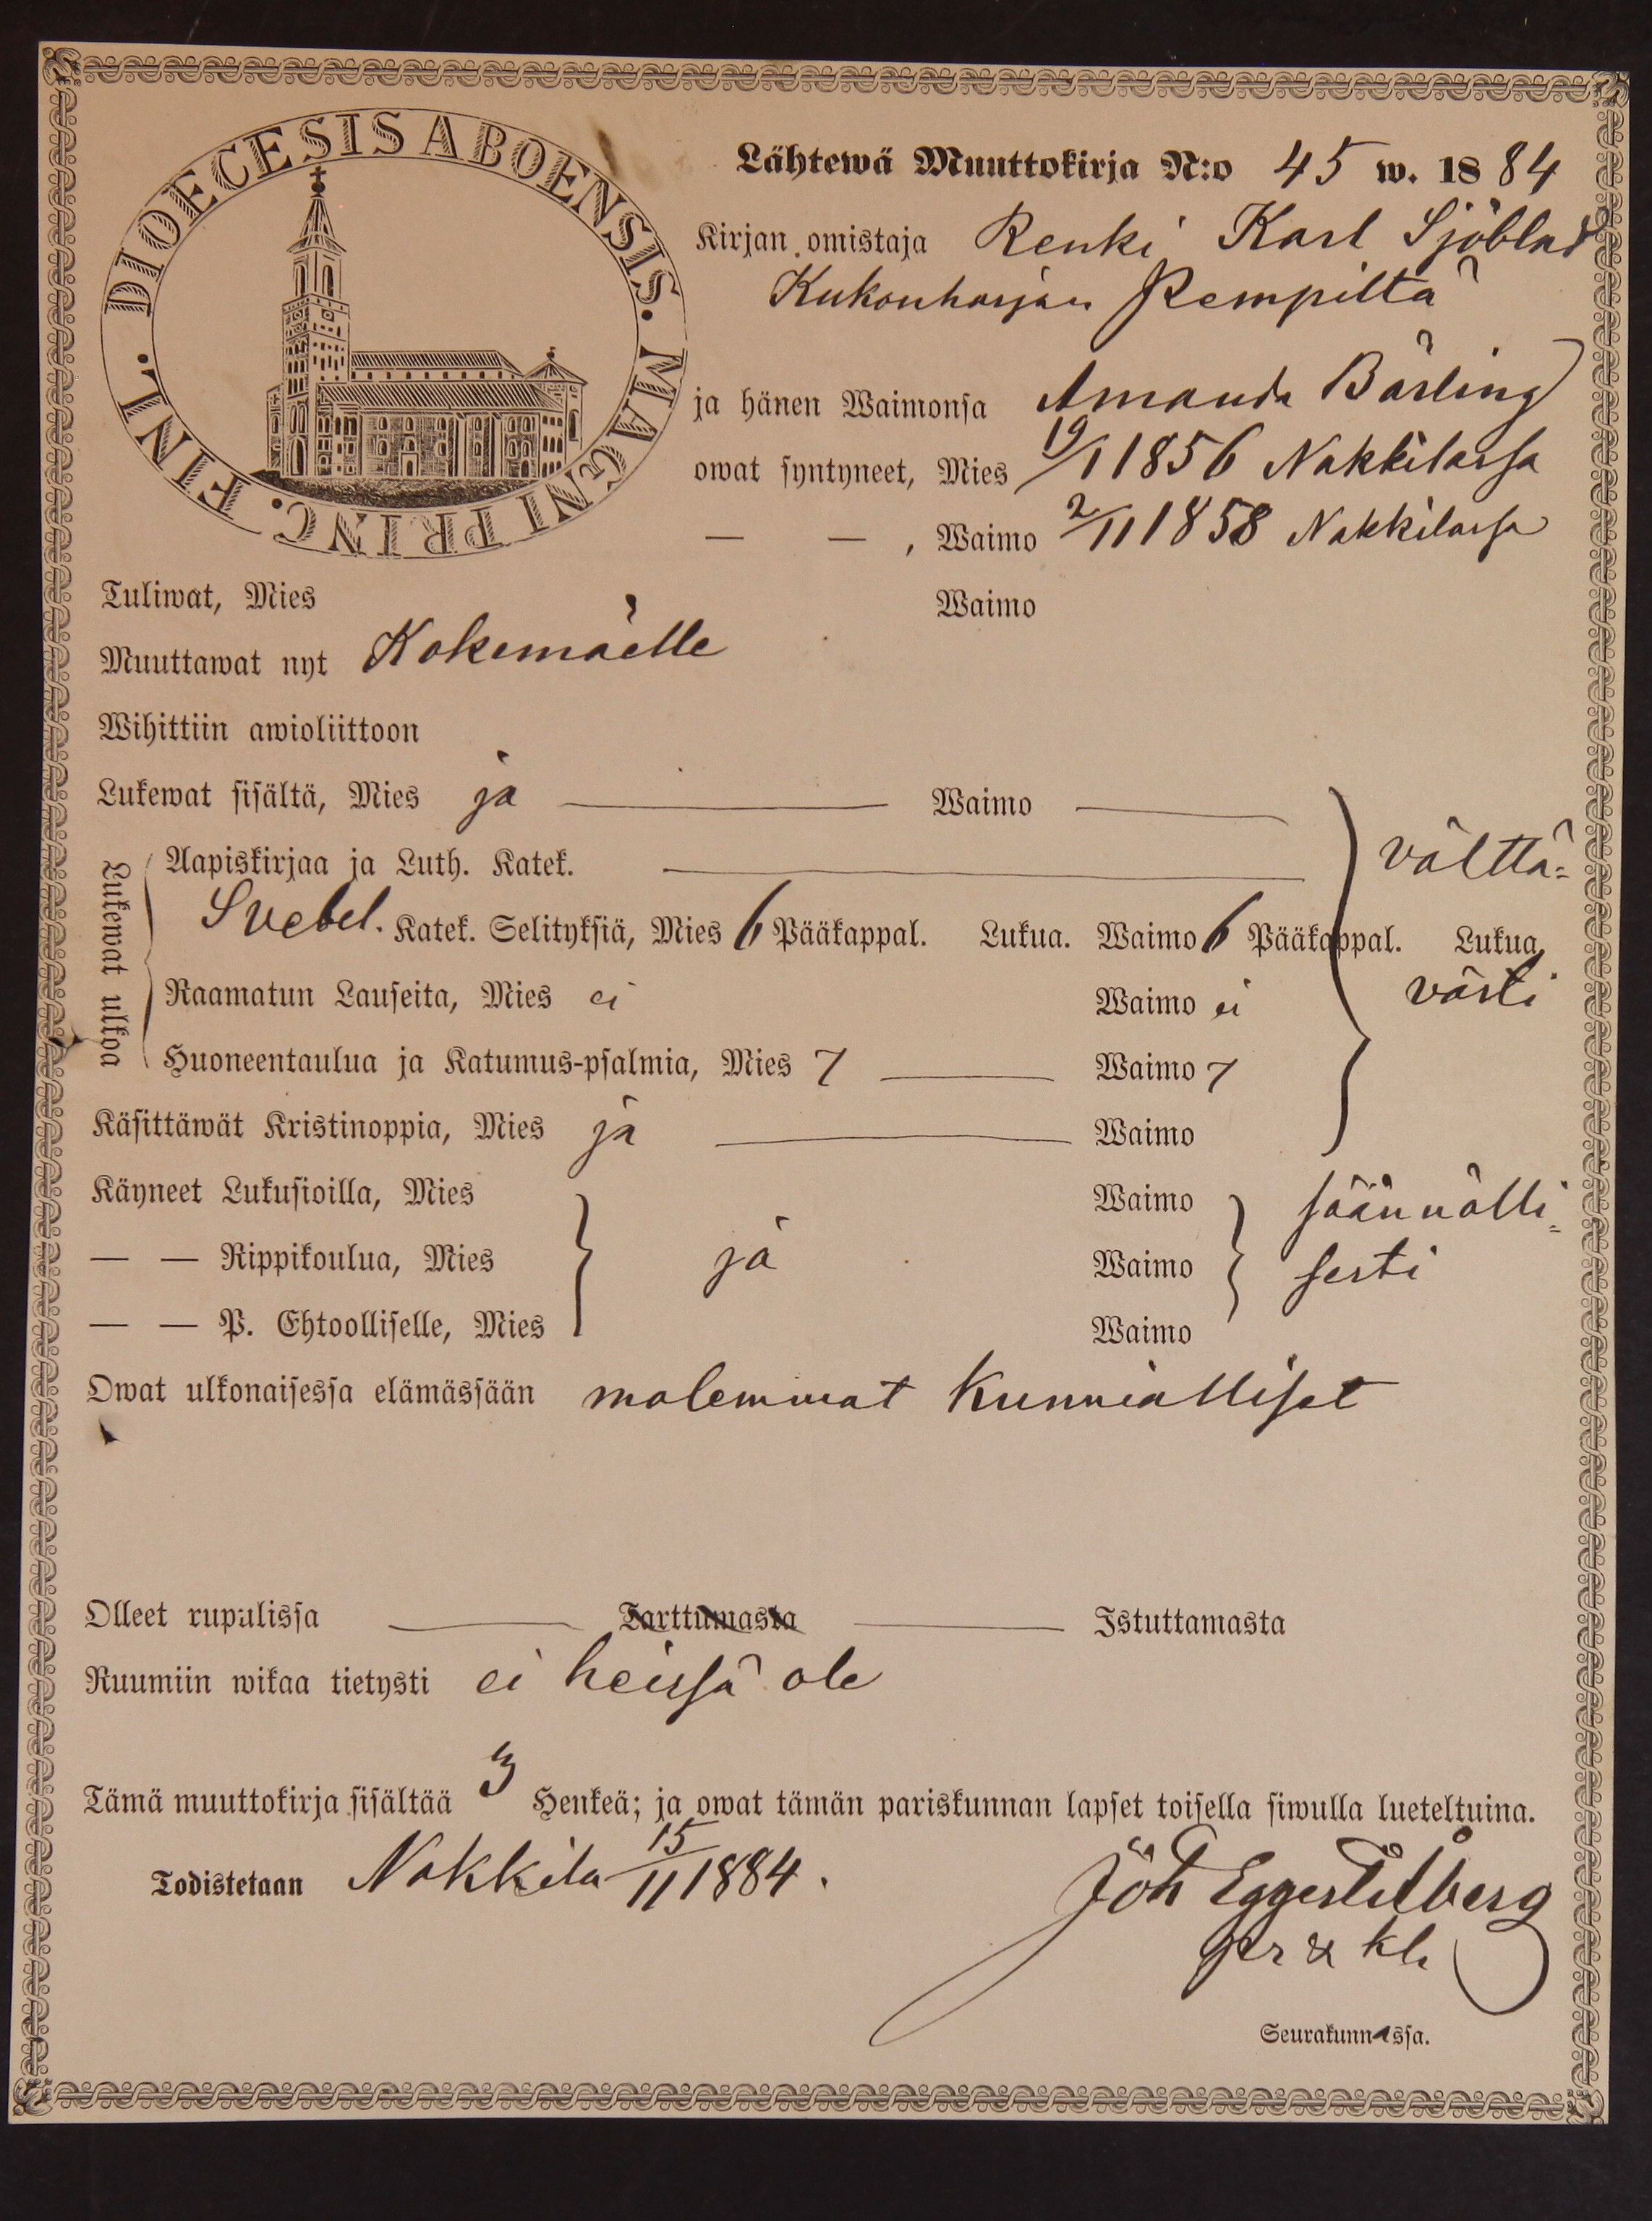 DIOECESIS ABOENSIS. MAGNI PRINC. FINL.
Lähtewä Muuttokirja N:o 45 w. 1884
Kirjan omistaja Renki Karl Sjöblad
Kukonharjan Rempiltä
ja hänen Waimonsa Amanda Bärling
owat syntyneet, Mies 19/1 1856 Nakkilassa
— — , Waimo 2/11 1858 Nakkilassa
Tuliwat, Mies Waimo
Muuttawat nyt Kokemäelle
Wihittiin awioliittoon
Lukewat sisältä, Mies ja Waimo
Lukewat ulkoa
Aapiskirjaa ja Luth. Katek. välttä=
Svebel. Katek. Selityksiä, Mies 6 Pääkappal. Lukua. Waimo 6 Pääkappal. Lukua,
Raamatun Lauseita, Mies ei Waimo ei västi
Huoneentaulua ja Katumus-psalmia, Mies 7 Waimo 7
Käsittäwät Kristinoppia, Mies ja Waimo
Käyneet Lukusioilla, Mies Waimo säännölli=
— — Rippikoulua, Mies ja Waimo sesti
— — P. Ehtoolliselle, Mies Waimo
Owat ulkonaisessa elämässään molemmat kunnialliset
Olleet rupulissa Tarttumasta Istuttamasta
Ruumiin wikaa tietysti ei heissä ole
Tämä muuttokirja sisältää 3 Henkeä; ja owat tämän pariskunnan lapset toisella siwulla lueteltuina.
Todistetaan Nakkila 15/11 1884.
Joh Eggert Elberg
pr & kl.
Seurakunnassa.